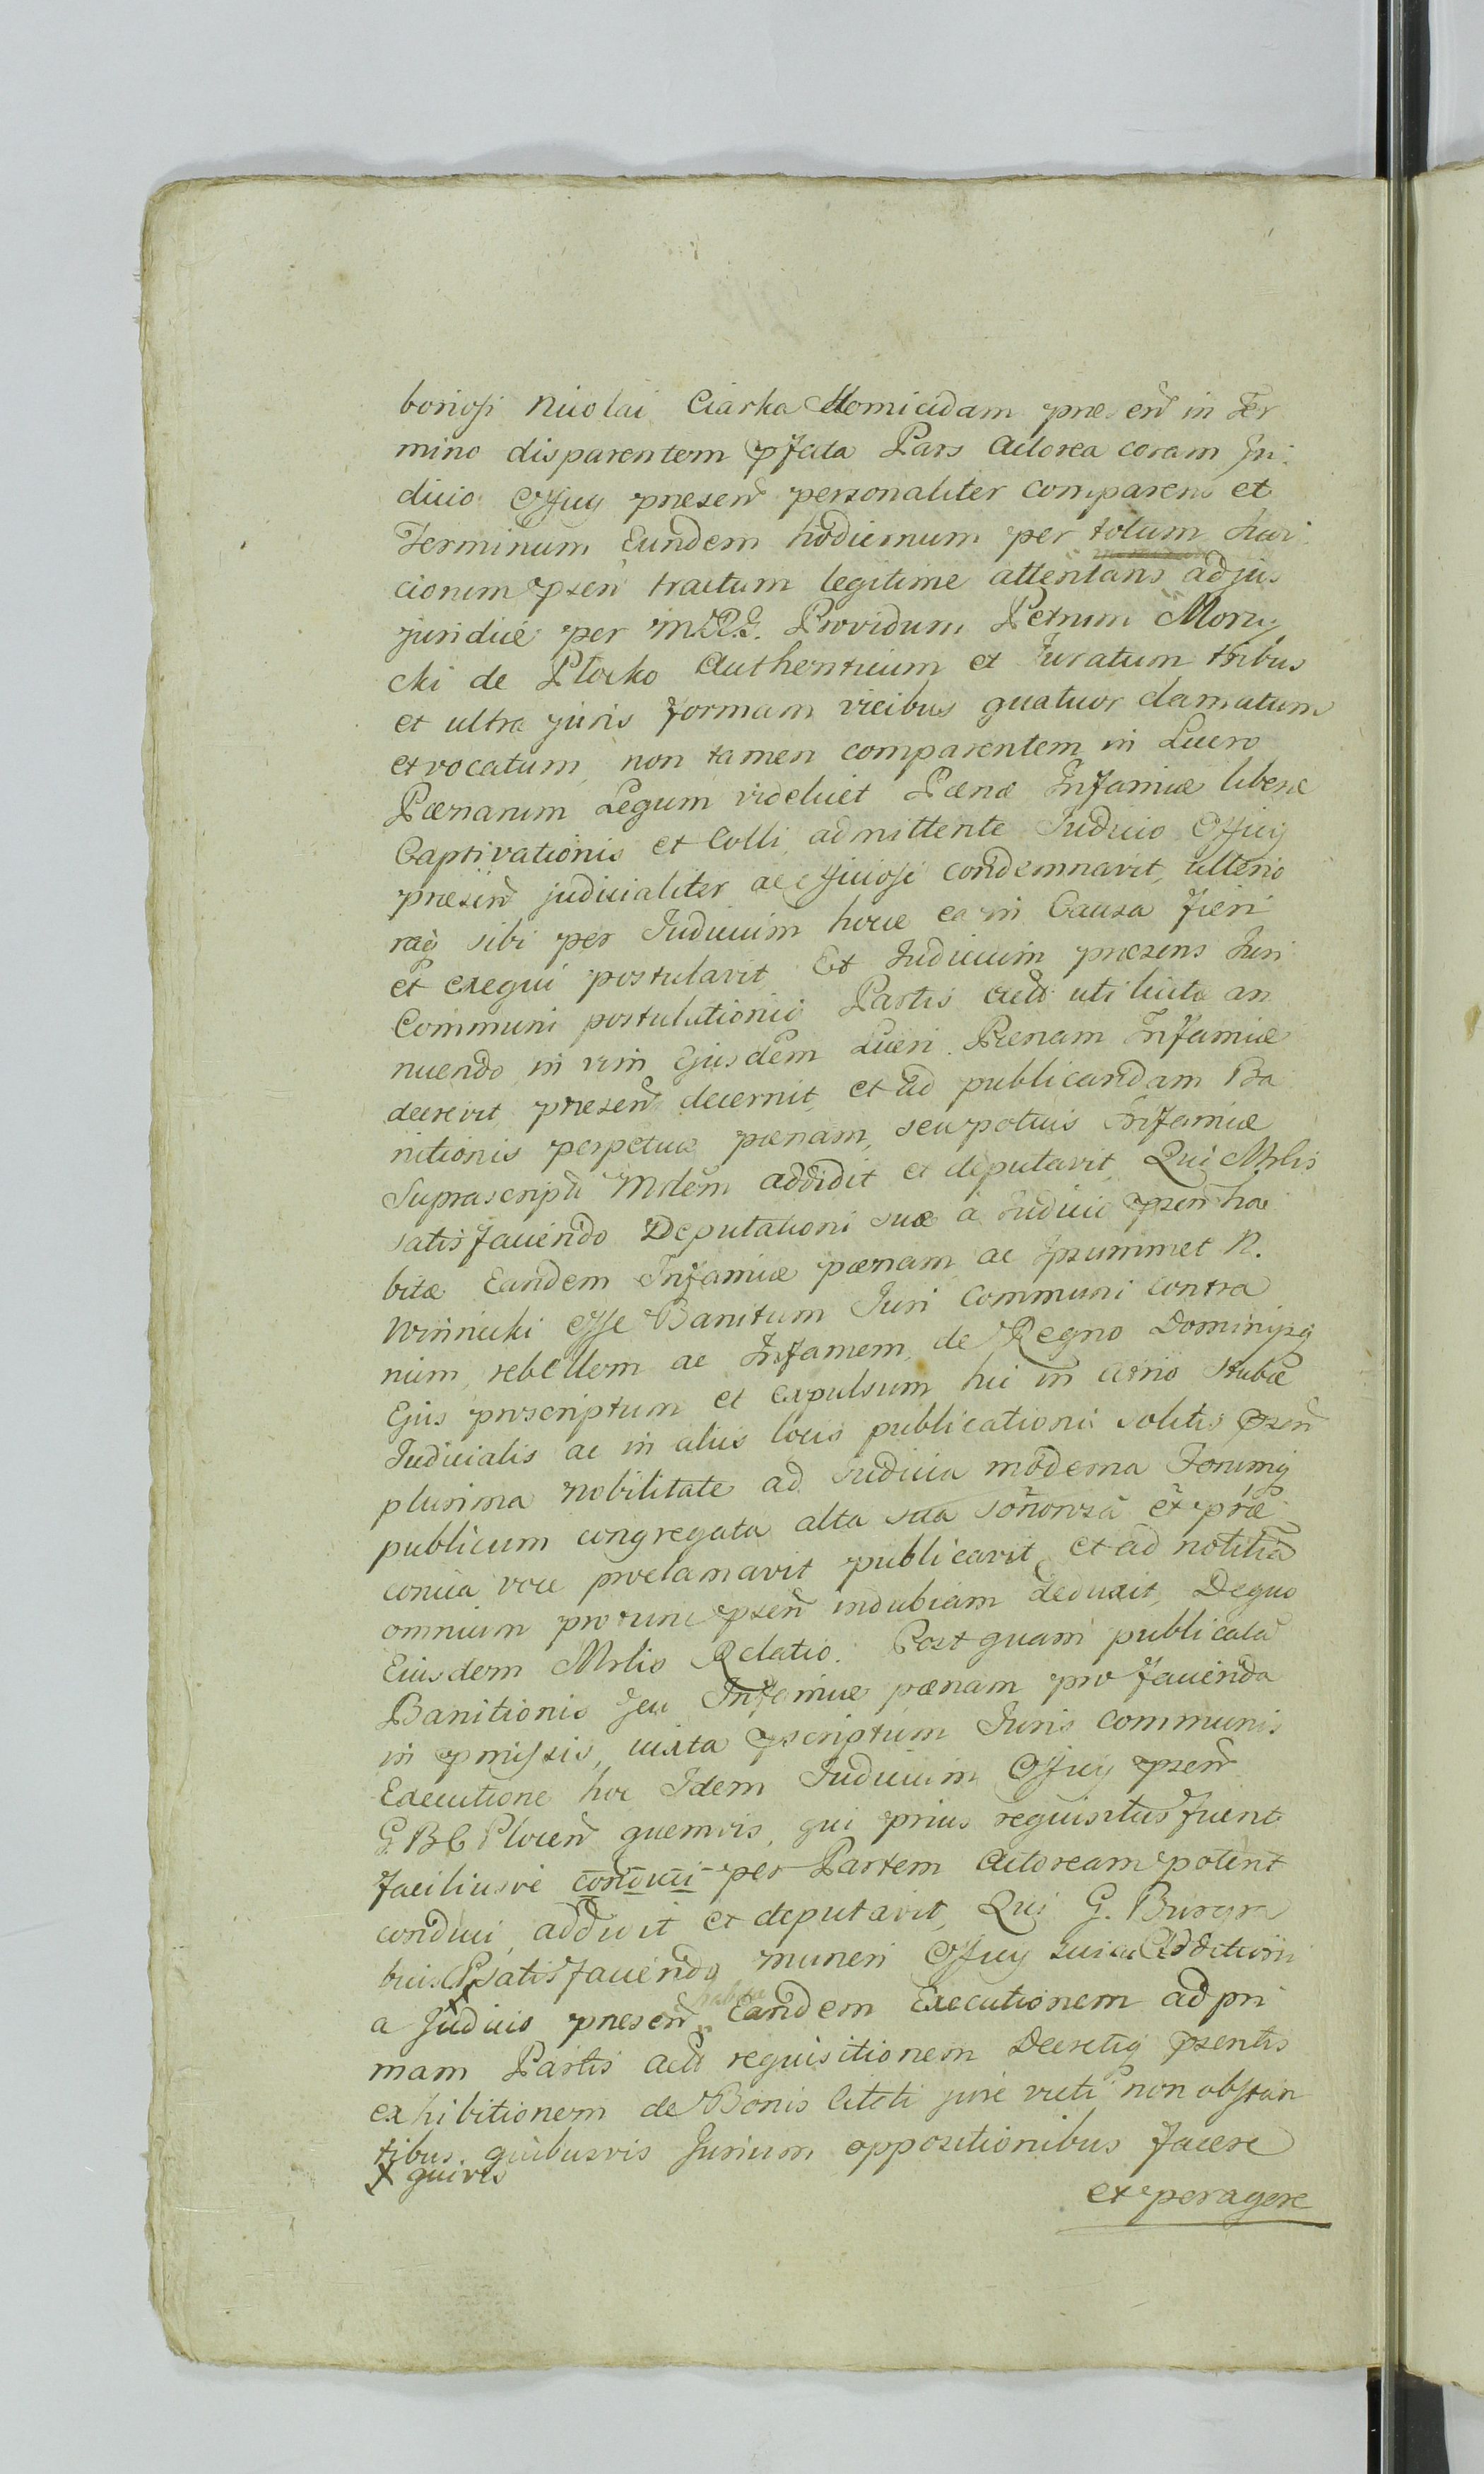 boriosi Nicolai Ciarka Homicidam praesen in Ter
mino disparentem pfata Pars Actorea coram Iu
dicio Officy praesen personaliter comparens et
Terminum Eundem hodiernum per totum
cionum psen tractum legitime attentans adjus
juridice per M.R.G. Providum Petrum Mory
cki de Plocko Authenticum et Iuratum tribus
et ultra juris formam vicibus quatuor clamatum
et vocatum, non tamen comparentem in Lucro
Paenarum Legum videlicet Paenae Infamiae liberae
Captivationis et Colli, admittente Iudicio Officy
praesen judicialiter ac officiose condemnavit, ulterio
raq sibi per Iudicium hocce ea in Causa fieri
et exequi postulavit Et Iudicium praesens Iuri
Communi postulationiq Partis act uti licitae an
nuendo in vim Ejusdem Lucri Paenam Infamiae
decrevit, praesen decernit, et ad publicandam Ba
nitionis perpetuae paenam, seu potius Infamiae
Suprascripti Mrlem addidit et deputavit, Qui Mrlis
satisfaciendo Deputationi suae a Iudicio psen ha
bitae Eandem Infamiae paenam ac Ipsummet N.
Winnicki esse Banitum Iuri Communi contra
rium, rebellem ac Infamem, de Regno Dominijsq
Ejus proscriptum et expulsum hic in circo Stubae
Iudicialis ac in alijs locis publicationi solitis psen
plurima nobilitate ad Iudicia moderna Forumq
publicum congregata alta sua sonorosa et prae
conica voce proclamavit publicavit et ad notitia
omnium pro tunc psen indubiam deduxit, De quo
Eiusdem Mrlis Relatio. Post quam publicata
Banitionis seu Infamiae paenam pro facienda
in pmissis, iuxta pscriptum Iuris communis
Executione hoc Idem Iudicium Officy psen
G. B. C. Plocen quemvis, qui prius requisitus fuerit
faciliusve conduci per Partem Actoream poterit
conduci, addidit et deputavit, Qui G. Burgra
bius satisfaciendo muneri Officy sui ac Addictioni
a Iudicio praesen habitae Eandem Executionem ad pri
mam Partis act requisitionem Decretiq psentis
exhibitionem de Bonis Citati jure victi non obstan
tibus quibusvis Jurium oppositionibus facere
X quivis
et peragere